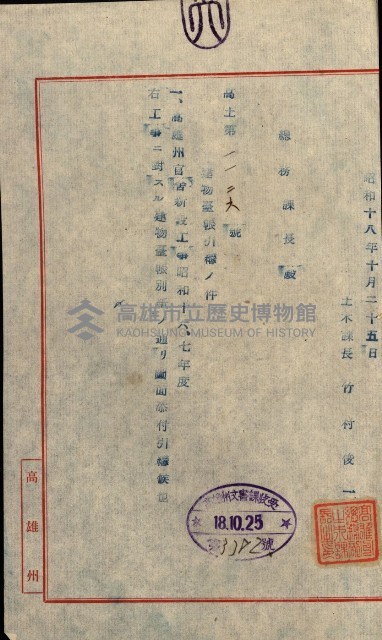 昭和十八年十月二十五日
土木課長 竹村俊一
總務課長殿
高土第一一二六號
建物臺帳引繼ノ件
一、高雄州官舍新設工事昭和十六、七年度
右工事ニ對スル建物臺帳別紙ノ通リ圖面添付引繼候也
高雄州
18.10.25
高雄市立歷史博物館
KAOHSIUNG MUSEUM OF HISTORY